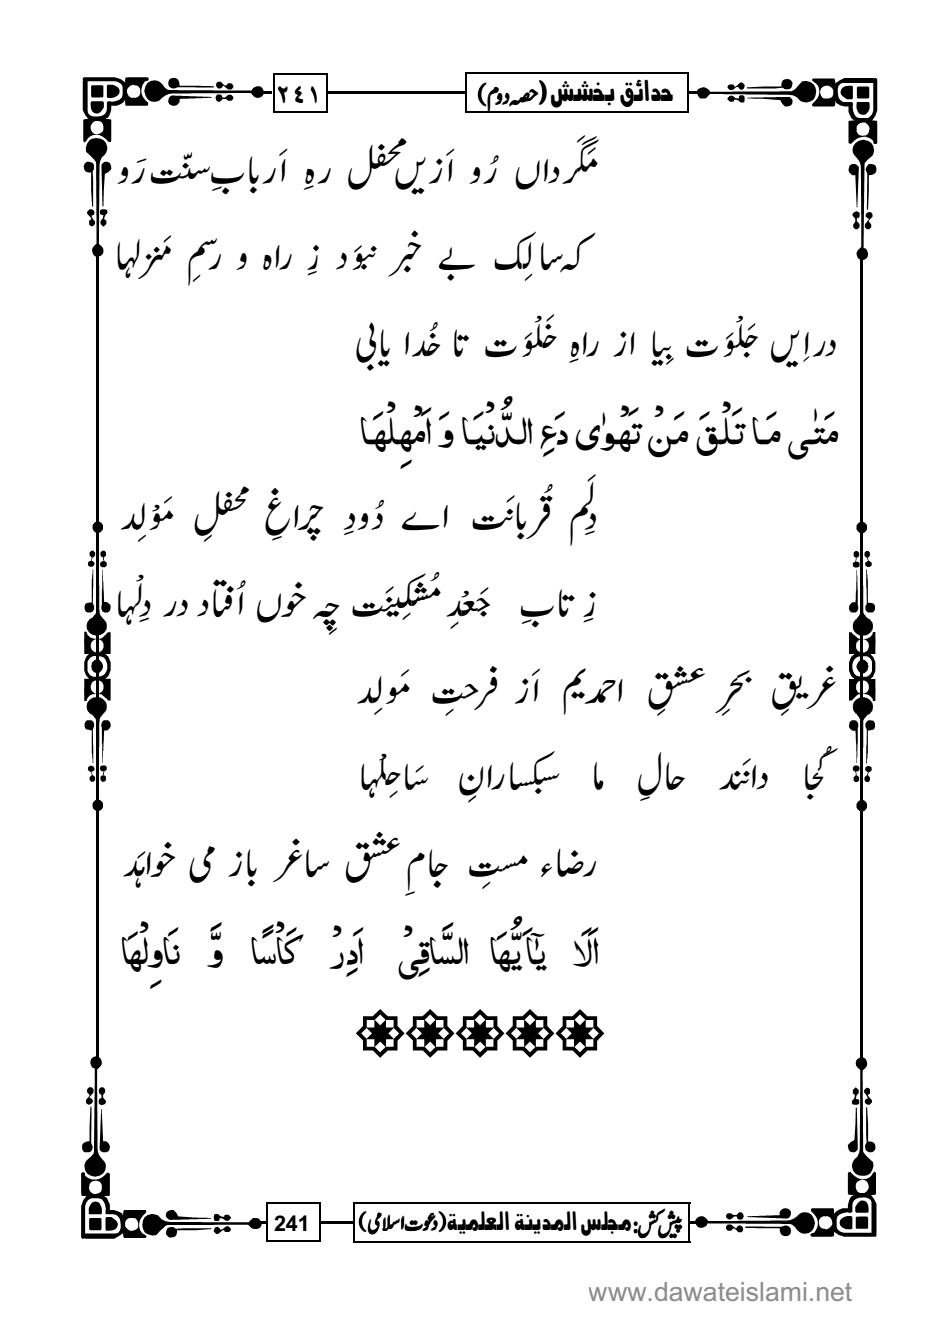 حدائق بخشش (حصہ دوم) ۲۴۱
مَگَرداں رُو اَزیں محفل رہِ اَربابِ سنّت رَو
کہ سالِک بے خبر نبوَد زِ راہ و رسمِ مَنزلہا
دراِیں جَلْوَت بِیا از راہِ خَلْوَت تا خُدا یابی
مَتٰی مَا تَلْقَ مَنْ تَهْوٰی دَعِ الدُّنْیَا وَ اَمْهِلْهَا
دِلَم قُربانَت اے دُودِ چراغِ محفلِ مَوْلِد
زِ تابِ جَعْدِ مُشکِینَت چِہ خوں اُفتاد در دِلْہا
غریقِ بحرِ عشقِ احمدیم اَز فرحتِ مَولِد
کُجا دانَند حالِ ما سبکسارانِ سَاحِلْہا
رضاء مستِ جامِ عشق ساغر باز می خواہَد
اَلَا یٰٓاَیُّهَا السَّاقِیْ اَدِرْ کَاْسًا وَّ نَاوِلْهَا
پیش کش: مجلس المدینۃ العلمیۃ (دعوت اسلامی) 241
www.dawateislami.net